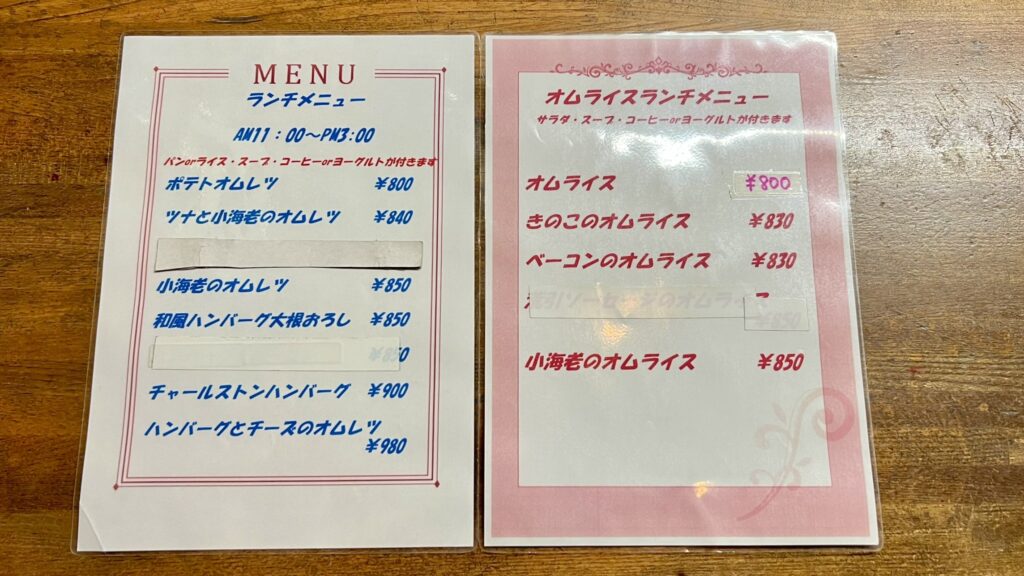 MENU
ランチメニュー
AM11：00～PM3:00
パンorライス・スープ・コーヒーorヨーグルトが付きます
ポテトオムレツ ￥800
ツナと小海老のオムレツ ￥840
小海老のオムレツ ￥850
和風ハンバーグ大根おろし ￥850
￥850
チャールストンハンバーグ ￥900
ハンバーグとチーズのオムレツ
￥980
オムライスランチメニュー
サラダ・スープ・コーヒーorヨーグルトが付きます
オムライス ￥800
きのこのオムライス ￥830
ベーコンのオムライス ￥830
引ソーセージのオムライス ￥850
小海老のオムライス ￥850